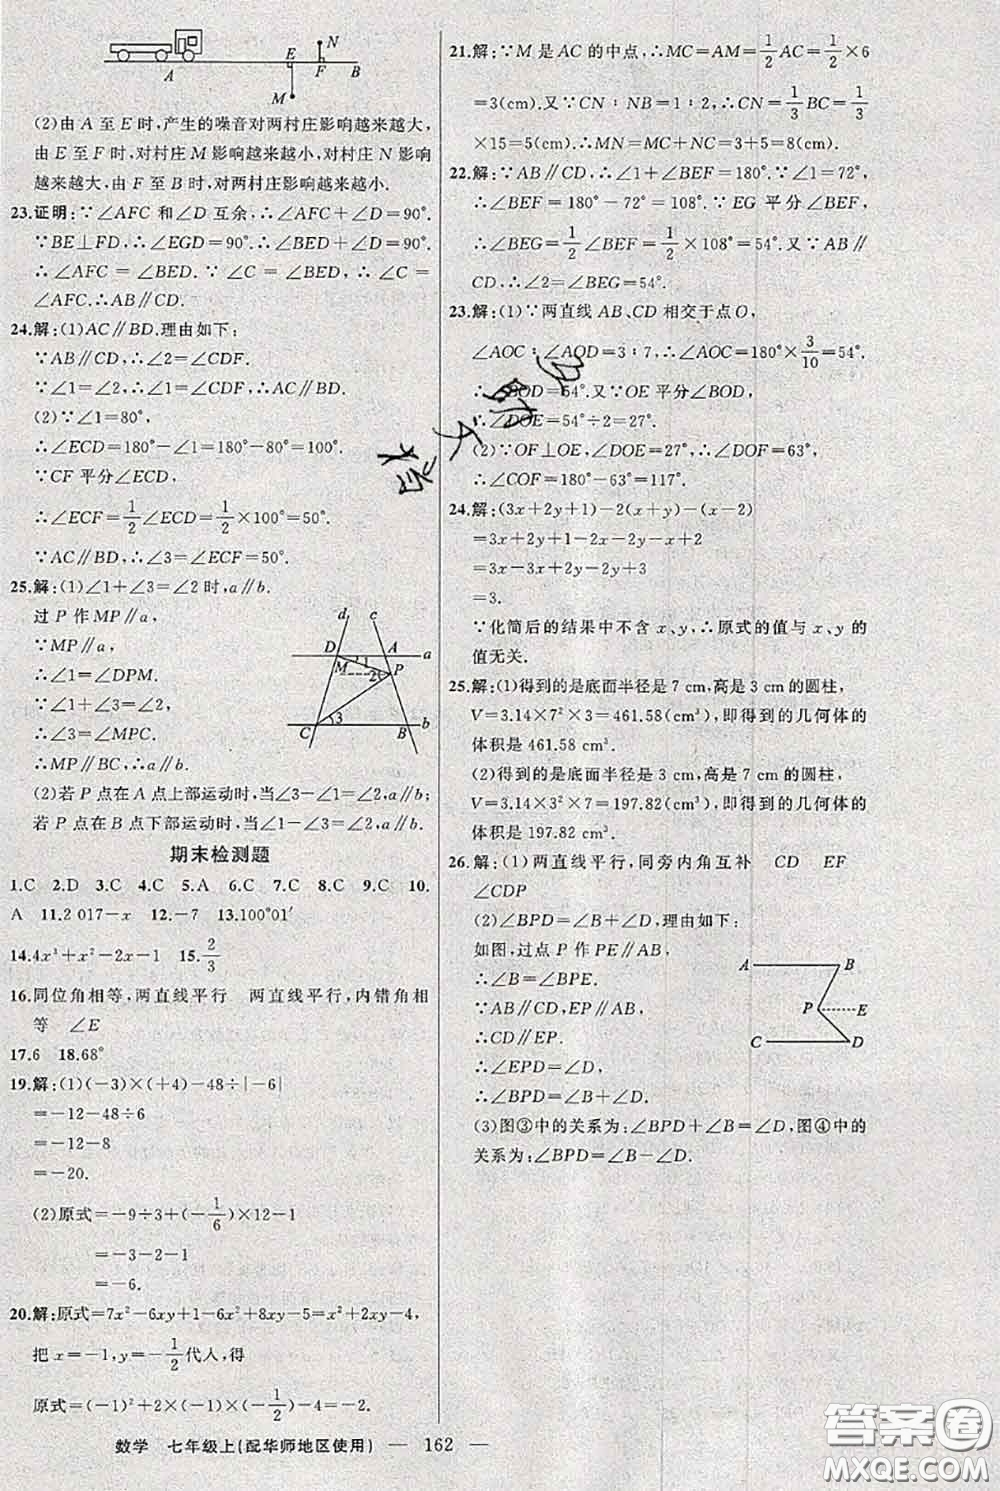 N
E
A
F
B
M
(2)由 A 至 E 时,产生的噪音对两村庄影响越来越大,
由 E 至 F 时,对村庄 M 影响越来越小,对村庄 N 影响
越来越大,由 F 至 B 时,对两村庄影响越来越小.
23.证明:∵∠AFC 和∠D 互余,∴∠AFC+∠D=90°.
∵BE⊥FD,∴∠EGD=90°.∴∠BED+∠D=90°.
∴∠AFC=∠BED.∵∠C=∠BED,∴∠C=
∠AFC.∴AB∥CD.
24.解:(1)AC∥BD.理由如下:
∵AB∥CD,∴∠2=∠CDF.
∵∠1=∠2,∴∠1=∠CDF,∴AC∥BD.
(2)∵∠1=80°,
∴∠ECD=180°-∠1=180°-80°=100°.
∵CF 平分∠ECD,
∴∠ECF=1/2∠ECD=1/2×100°=50°.
∵AC∥BD,∴∠2=∠ECF=50°.
25.解:(1)∠1+∠3=∠2时,a∥b.
过 P 作 MP∥a,
∵MP∥a,
∴∠1=∠DPM.
∵∠1+∠3=∠2,
∴∠3=∠MPC.
∴MP∥BC,∴a∥b.
d c
D A a
M 1 P
2
3
C B b
(2)若 P 点在 A 点上部运动时,当∠3-∠1=∠2;
若 P 点在 B 点下部运动时,当∠1-∠3=∠2.
期末检测题
1.C 2.D 3.C 4.C 5.A 6.C 7.C 8.C 9.C 10.
A 11.2 017-x 12.-7 13.100°01′
14.4x³+x²-2x-1 15.2/3
16.同位角相等,两直线平行 两直线平行,内错角相
等 ∠E
17.6 18.68°
19.解:(1)(-3)×(+4)-48÷|-6|
=-12-48÷6
=-12-8
=-20.
(2)原式=-9÷3+(-1/6)×12-1
=-3-2-1
=-6.
20.解:原式=7x²-6xy+1-6x²+8xy-5=x²+2xy-4,
把 x=-1,y=-1/2代人,得
原式=(-1)²+2×(-1)×(-1/2)-4=-2.
21.解:∵M 是 AC 的中点,∴MC=AM=1/2AC=1/2×6
=3(cm).又∵CN∶NB=1∶2,∴CN=1/3BC=1/3
×15=5(cm).∴MN=MC+NC=3+5=8(cm).
22.解:∵AB∥CD,∴∠1+∠BEF=180°.∵∠1=72°,
∴∠BEF=180°-72°=108°.∵EG 平分∠BEF,
∴∠BEG=1/2∠BEF=1/2×108°=54°.又∵AB∥
CD,∴∠2=∠BEG=54°.
23.解:(1)∵两直线 AB,CD 相交于点 O,
∠AOC∶∠AOD=3∶7,∴∠AOC=180°×3/10=54°.
∴∠BOD=54°.又∵OE 平分∠BOD,
∴∠DOE=54°÷2=27°.
(2)∵OF⊥OE,∠DOE=27°,∴∠DOF=63°,
∴∠COF=180°-63°=117°.
24.解:(3x+2y+1)-2(x+y)-(x-2)
=3x+2y+1-2x-2y-x+2
=3x-3x+2y-2y+3
=3.
∵化简后的结果中不含 x、y,∴原式的值与 x、y 的
值无关.
25.解:(1)得到的是底面半径是 7 cm,高是 3 cm 的圆柱,
V=3.14×7²×3=461.58(cm³),即得到的几何体的
体积是 461.58 cm³.
(2)得到的是底面半径是 3 cm,高是 7 cm 的圆柱,
V=3.14×3²×7=197.82(cm³),即得到的几何体的
体积是 197.82 cm³.
26.解:(1)两直线平行,同旁内角互补 CD EF
∠CDP
(2)∠BPD=∠B+∠D,理由如下:
如图,过点 P 作 PE∥AB,
∴∠B=∠BPE.
∵AB∥CD,EP∥AB,
∴CD∥EP.
∴∠EPD=∠D.
∴∠BPD=∠B+∠D.
A B
P E
C D
(3)图③中的关系为:∠BPD+∠B=∠D,图④中的
关系为:∠BPD=∠B-∠D.
数学 七年级上(配华师地区使用) — 162 —
答案圈
MXQE.COM